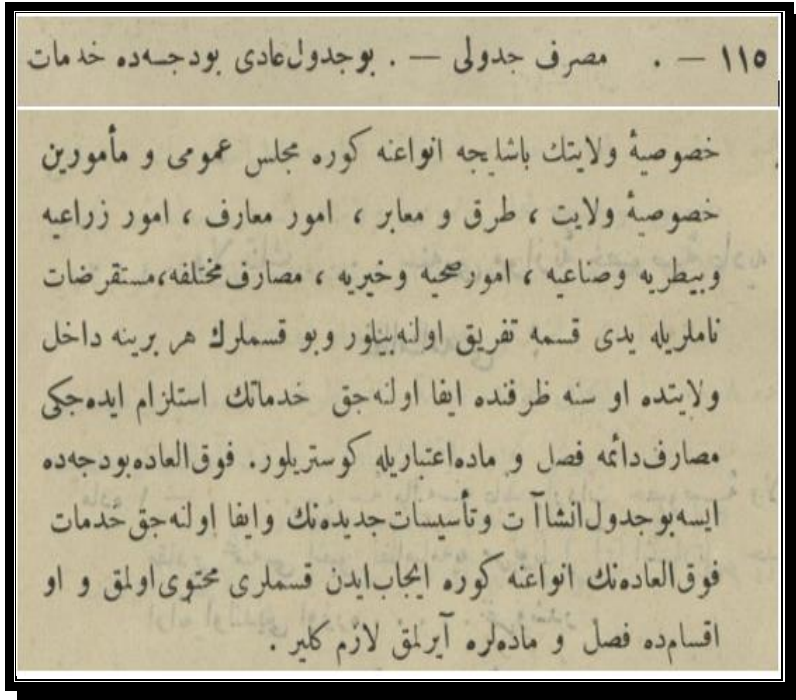 ١١٥ — . مصرف جدولی — . بوجدول عادی بودجسه‌ده خدمات
خصوصیهٔ ولایتك باشلیجه انواعنه كوره مجلس عمومی و مأمورین
خصوصیهٔ ولایت ، طرق و معابر ، امور معارف ، امور زراعیه
وبیطریه وصناعیه ، امورصحیه وخیریه ، مصارف مختلفه،مستقرضات
ناملریله یدی قسمه تفریق اولنه‌بیلور وبو قسملرك هر برینه داخل
ولایتده او سنه ظرفنده ایفا اولنه‌جق خدماتك استلزام ایده‌جكی
مصارف‌دائمه فصل و ماده‌اعتباریله كوستریلور. فوق‌العاده‌بودجه‌ده
ایسه‌بوجدول‌انشاآت وتأسیسات‌جدیده‌نك وایفا اولنه‌جق‌خدمات
فوق‌العاده‌نك انواعنه كوره ایجاب‌ایدن قسملری محتوی‌اولمق و او
اقسام‌ده فصل و ماده‌لره آیرلمق لازم كلیر .